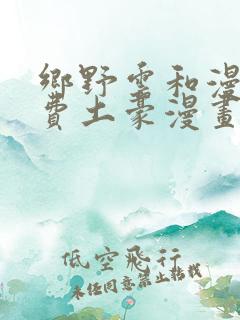 鄉野靈和漫
費土豪漫畫
低空飛行
未經同意禁止轉載